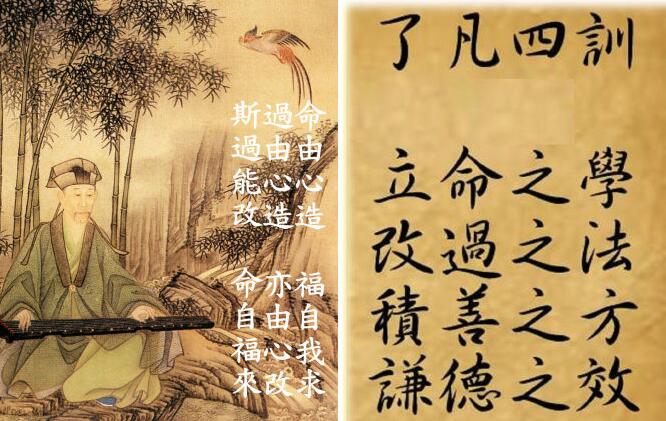 命由心造 福自我求
過由心造 亦由心改
斯過能改 命自福來
了凡四訓
立命之學
改過之法
積善之方
謙德之效